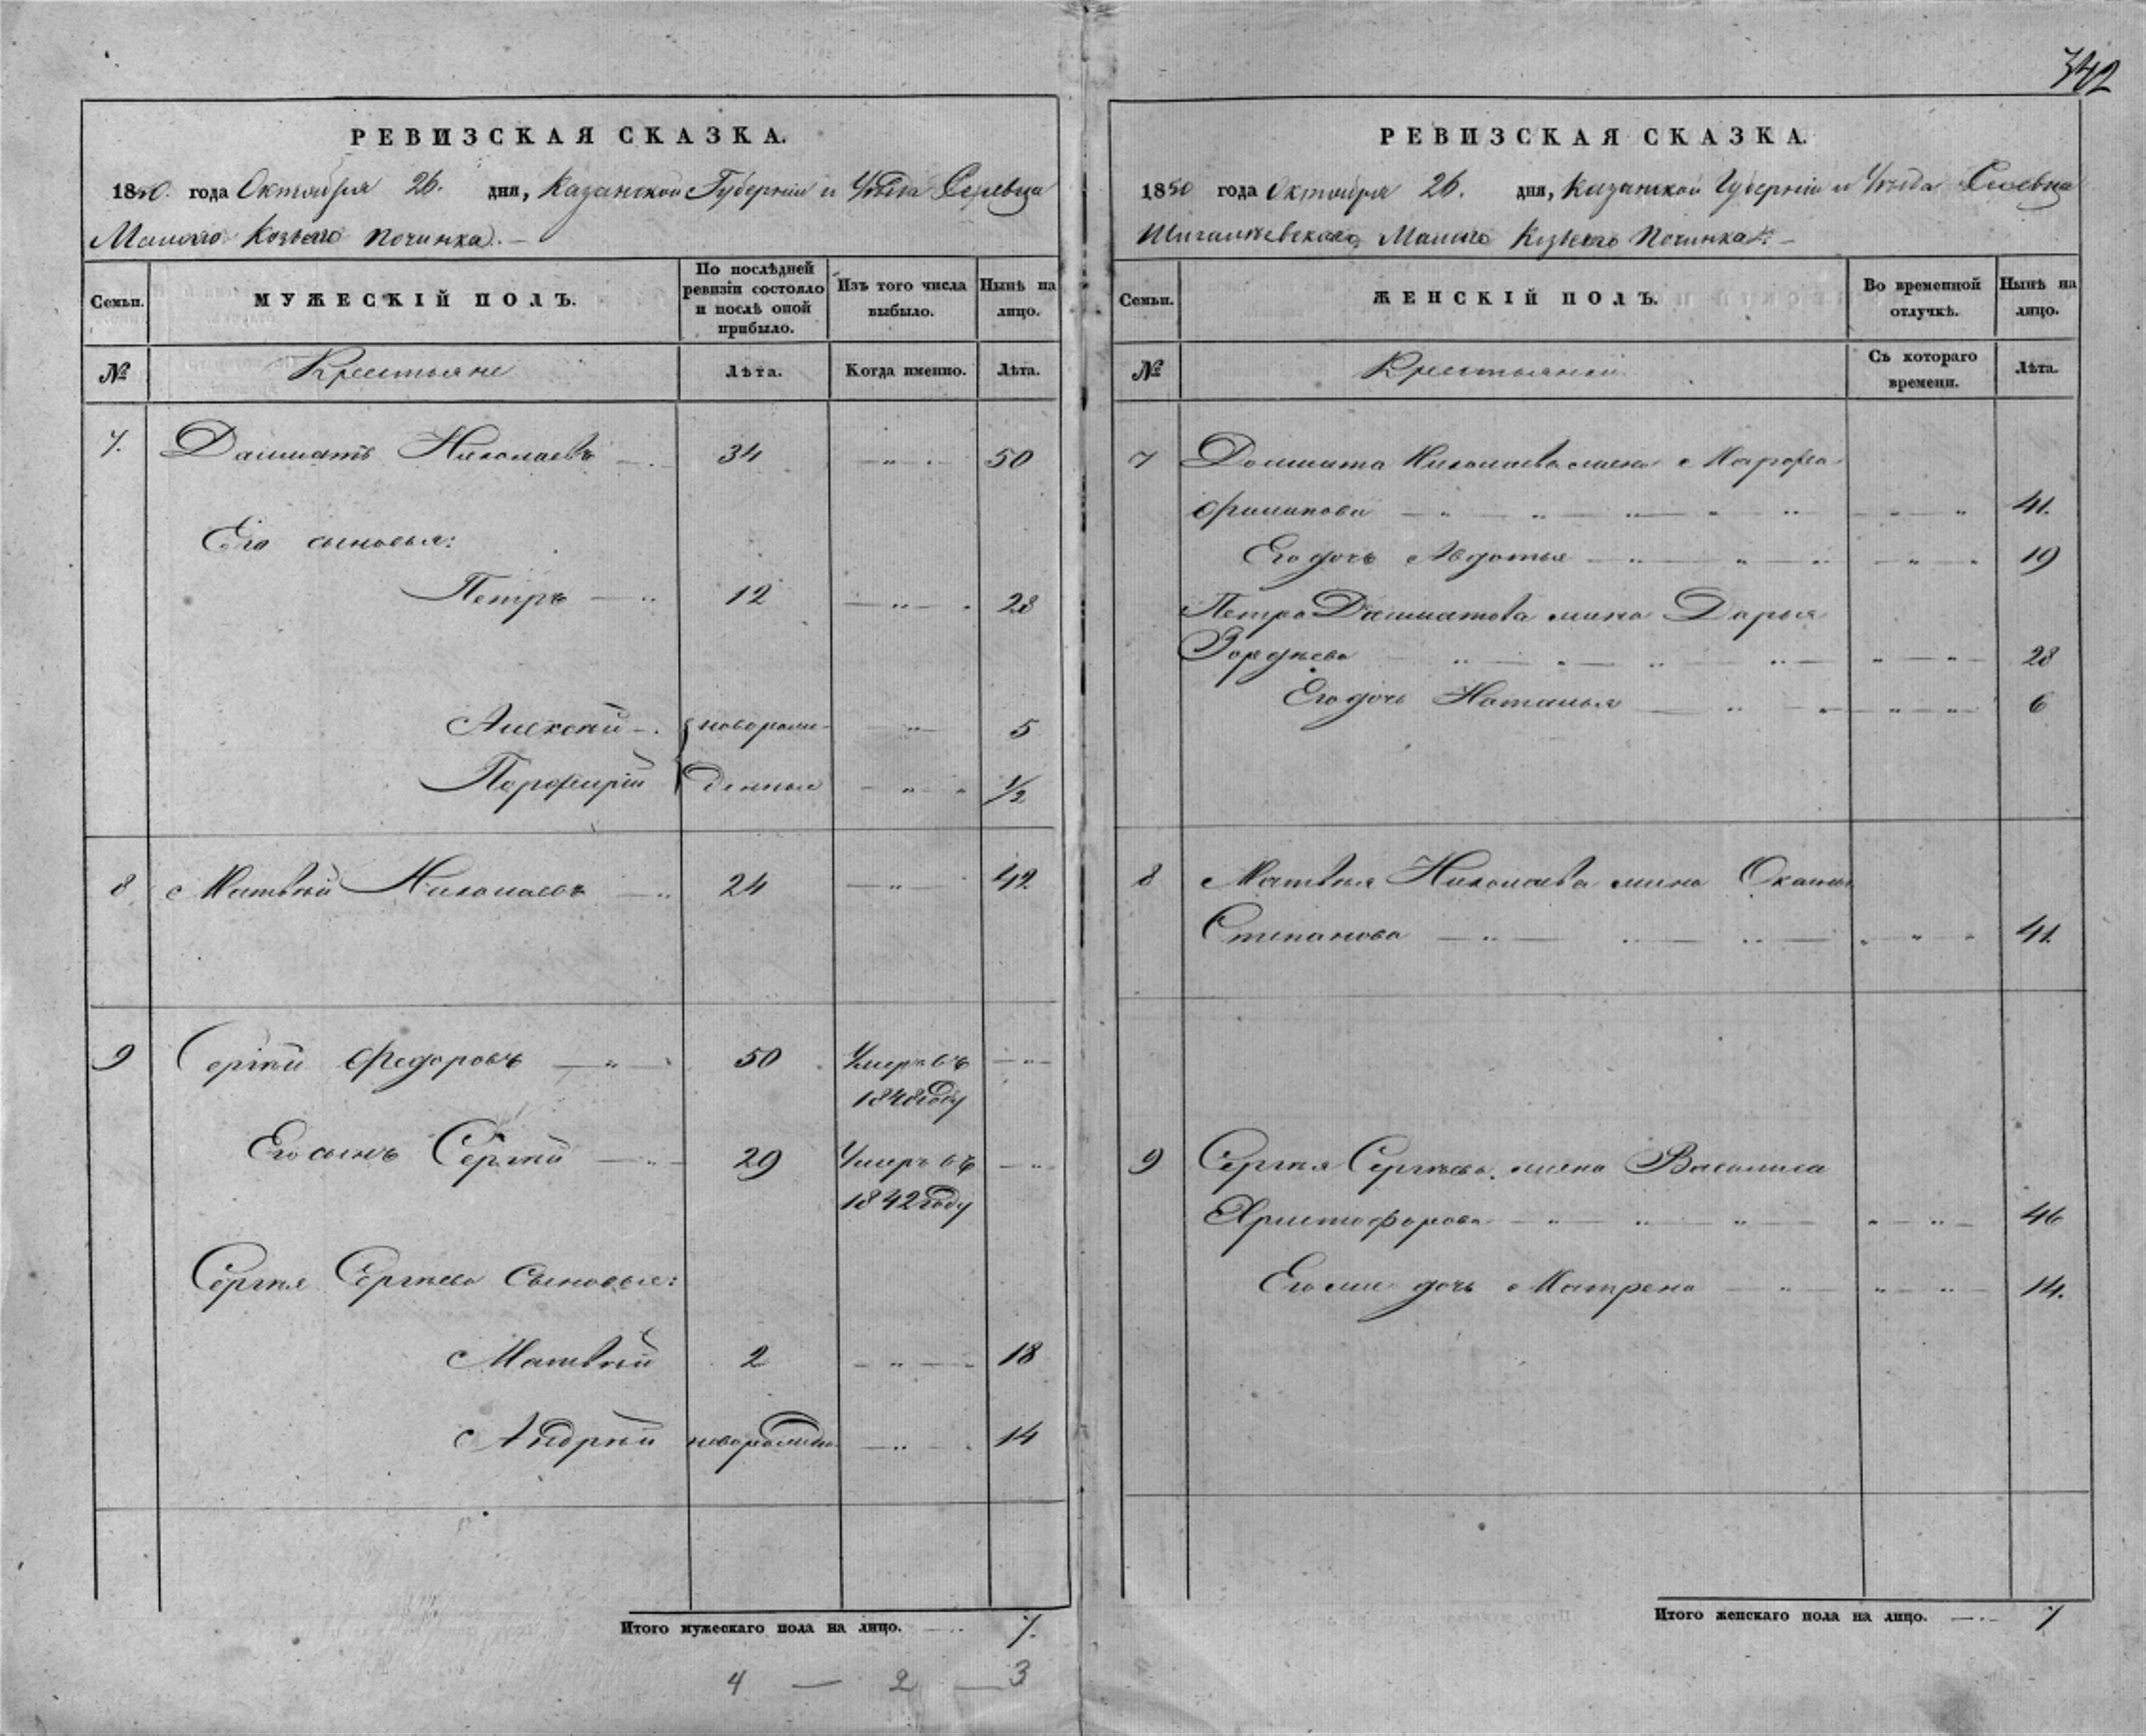 342
РЕВИЗСКАЯ СКАЗКА.
1850. года Октября 26. дня, Казанской Губернiи и Уѣзда Сельца
Малаго Козьяго Починка. —
Семьи. МУЖЕСКIЙ ПОЛЪ. По послѣдней ревизiи состояло и послѣ оной прибыло. Изъ того числа выбыло. Нынѣ на лицо.
№ Крестьяне Лѣта. Когда именно. Лѣта.
7. Далматъ Николаевъ — 34 — „ — 50
Его сыновья:
Петръ — „ 12 — „ — 28
Алексѣй — { новорож- — „ — 5
Порфирiй денные — „ — ½
8 Матвѣй Николаевъ — „ 24 — „ 42
9 Сергѣй Федоровъ — „ — 50 Умеръ въ — „ —
1848 году
Его сынъ Сергѣй — „ — 29 Умеръ въ — „
1842 году
Сергѣя Сергѣева сыновья:
Матвѣй 2 — „ — 18
Андрѣй новорожден. — „ — 14
Итого мужескаго пола на лицо. — „ 7.
4 — 2 — 3
РЕВИЗСКАЯ СКАЗКА.
1850 года Октября 26. дня, Казанской Губернiи и Уѣзда Сельца
Малаго Козьяго Починка. —
Семьи. ЖЕНСКIЙ ПОЛЪ. Во временной отлучкѣ. Нынѣ на лицо.
№ Крестьянки Съ котораго времени. Лѣта.
7 Далмата Николаева жена Марфа
Филипова — „ — „ — „ — „ — „ — „ — „ 41.
Его дочь Авдотья — „ — „ — „ — „ — „ 19
Петра Далматова жена Дарья
Гордѣева — „ — „ — „ — „ — „ — „ — 28
Его дочь Наталья — „ — „ — „ — „ — 6
8 Матвѣя Николаева жена
Степанова — „ — „ — „ — „ „ „ 41.
9 Сергѣя Сергѣева жена Василиса
Христофорова — „ — „ — „ — „ — „ — 46
Его же дочь Матрена — „ — „ — „ — 14.
Итого женскаго пола на лицо. — „ — 7